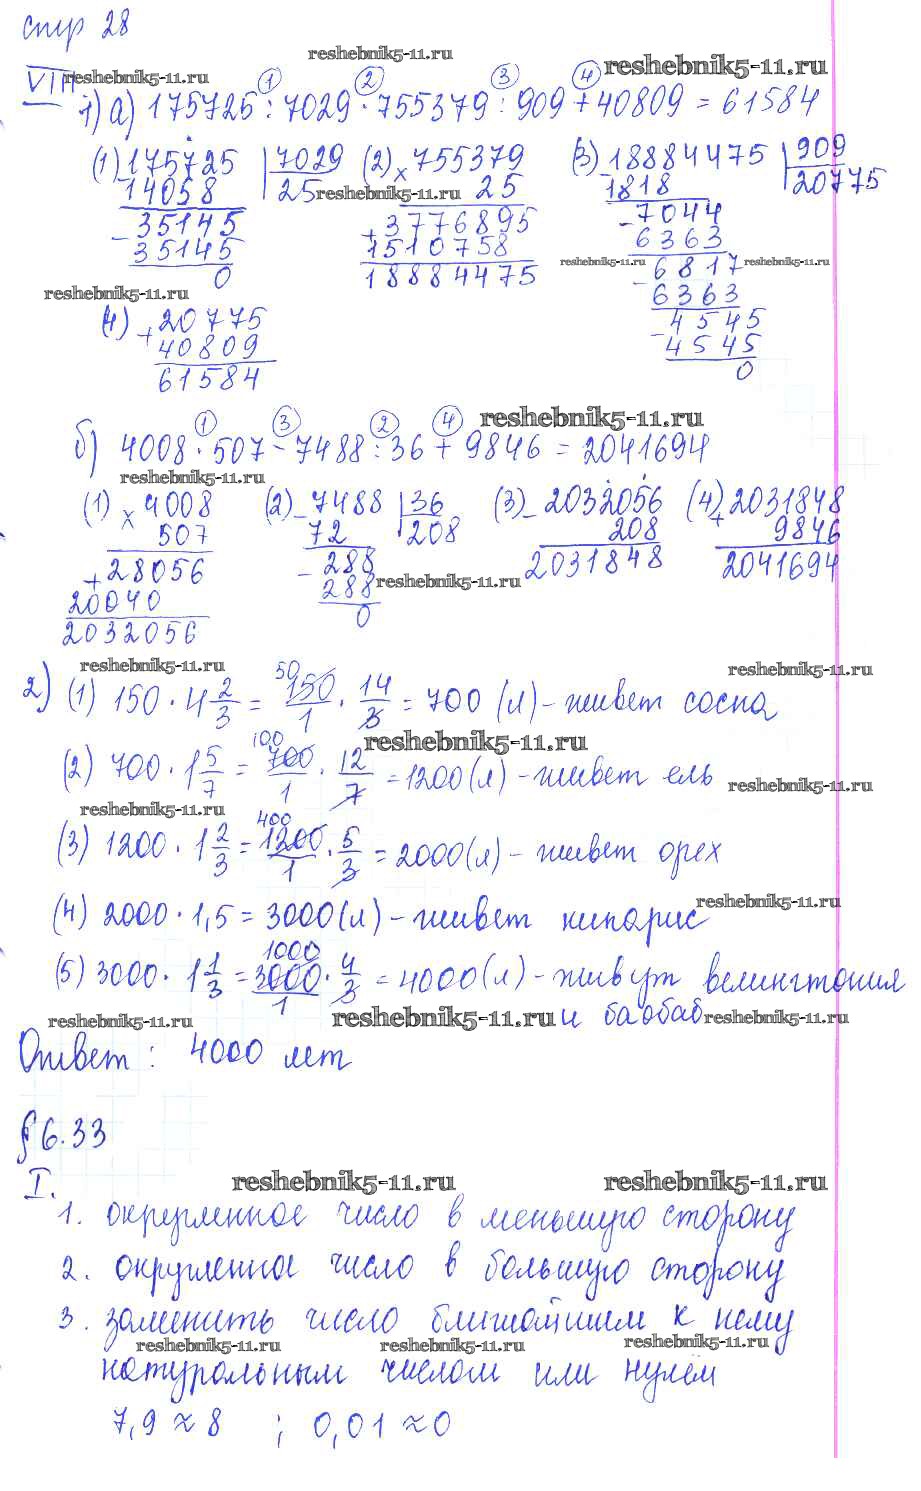 стр 28
reshebnik5-11.ru
VIII reshebnik5-11.ru ① ② ③ ④ reshebnik5-11.ru
1) а) 175725 : 7029 · 755379 : 909 + 40809 = 61584
(1) 175725 | 7029 (2) × 755379 (3) 18884475 | 909
- 14058 | 25 reshebnik5-11.ru 25 - 1818 | 20775
- 35145 + 3776895 - 7044
35145 1510758 6363
0 18884475 reshebnik5-11.ru - 6817 reshebnik5-11.ru
reshebnik5-11.ru 6363
(4) + 20775 - 4545
40809 4545
61584 0
① ③ ② ④ reshebnik5-11.ru
б) 4008 · 507 - 7488 : 36 + 9846 = 2041694
reshebnik5-11.ru
(1) × 4008 (2) - 7488 | 36 (3) - 2032056 (4) + 2031848
507 72 | 208 208 9846
+ 28056 - 288 2031848 2041694
20040 288 reshebnik5-11.ru
2032056 0
reshebnik5-11.ru reshebnik5-11.ru
2) (1) 150 · 4 2/3 = 50 150/1 · 14/3 = 700 (л) - живет сосна
(2) 700 · 1 5/7 = 100 700/1 · 12/7 = 1200 (л) - живет ель
reshebnik5-11.ru
reshebnik5-11.ru reshebnik5-11.ru
(3) 1200 · 1 2/3 = 400 1200/1 · 5/3 = 2000 (л) - живет орех
reshebnik5-11.ru
(4) 2000 · 1,5 = 3000 (л) - живет кипарис
(5) 3000 · 1 1/3 = 1000 3000/1 · 4/3 = 4000 (л) - живут велингтония
reshebnik5-11.ru reshebnik5-11.ru и баобаб reshebnik5-11.ru
Ответ: 4000 лет
§ 6.33
I. reshebnik5-11.ru reshebnik5-11.ru
1. округленное число в меньшую сторону
2. округленное число в большую сторону
3. заменить число ближайшим к нему
reshebnik5-11.ru reshebnik5-11.ru reshebnik5-11.ru
натуральным числом или нулем
7,9 ≈ 8 ; 0,01 ≈ 0